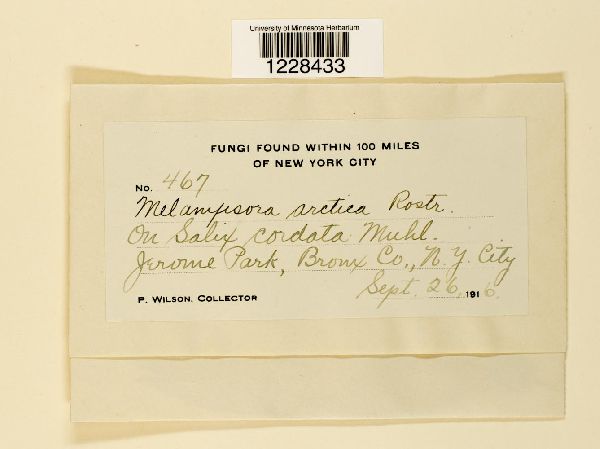 University of Minnesota Herbarium
1228433
FUNGI FOUND WITHIN 100 MILES
OF NEW YORK CITY
No. 467
Melampsora arctica Rostr.
On Salix cordata Muhl.
Jerome Park, Bronx Co., N.Y. City
Sept. 26, 1916.
P. WILSON, COLLECTOR